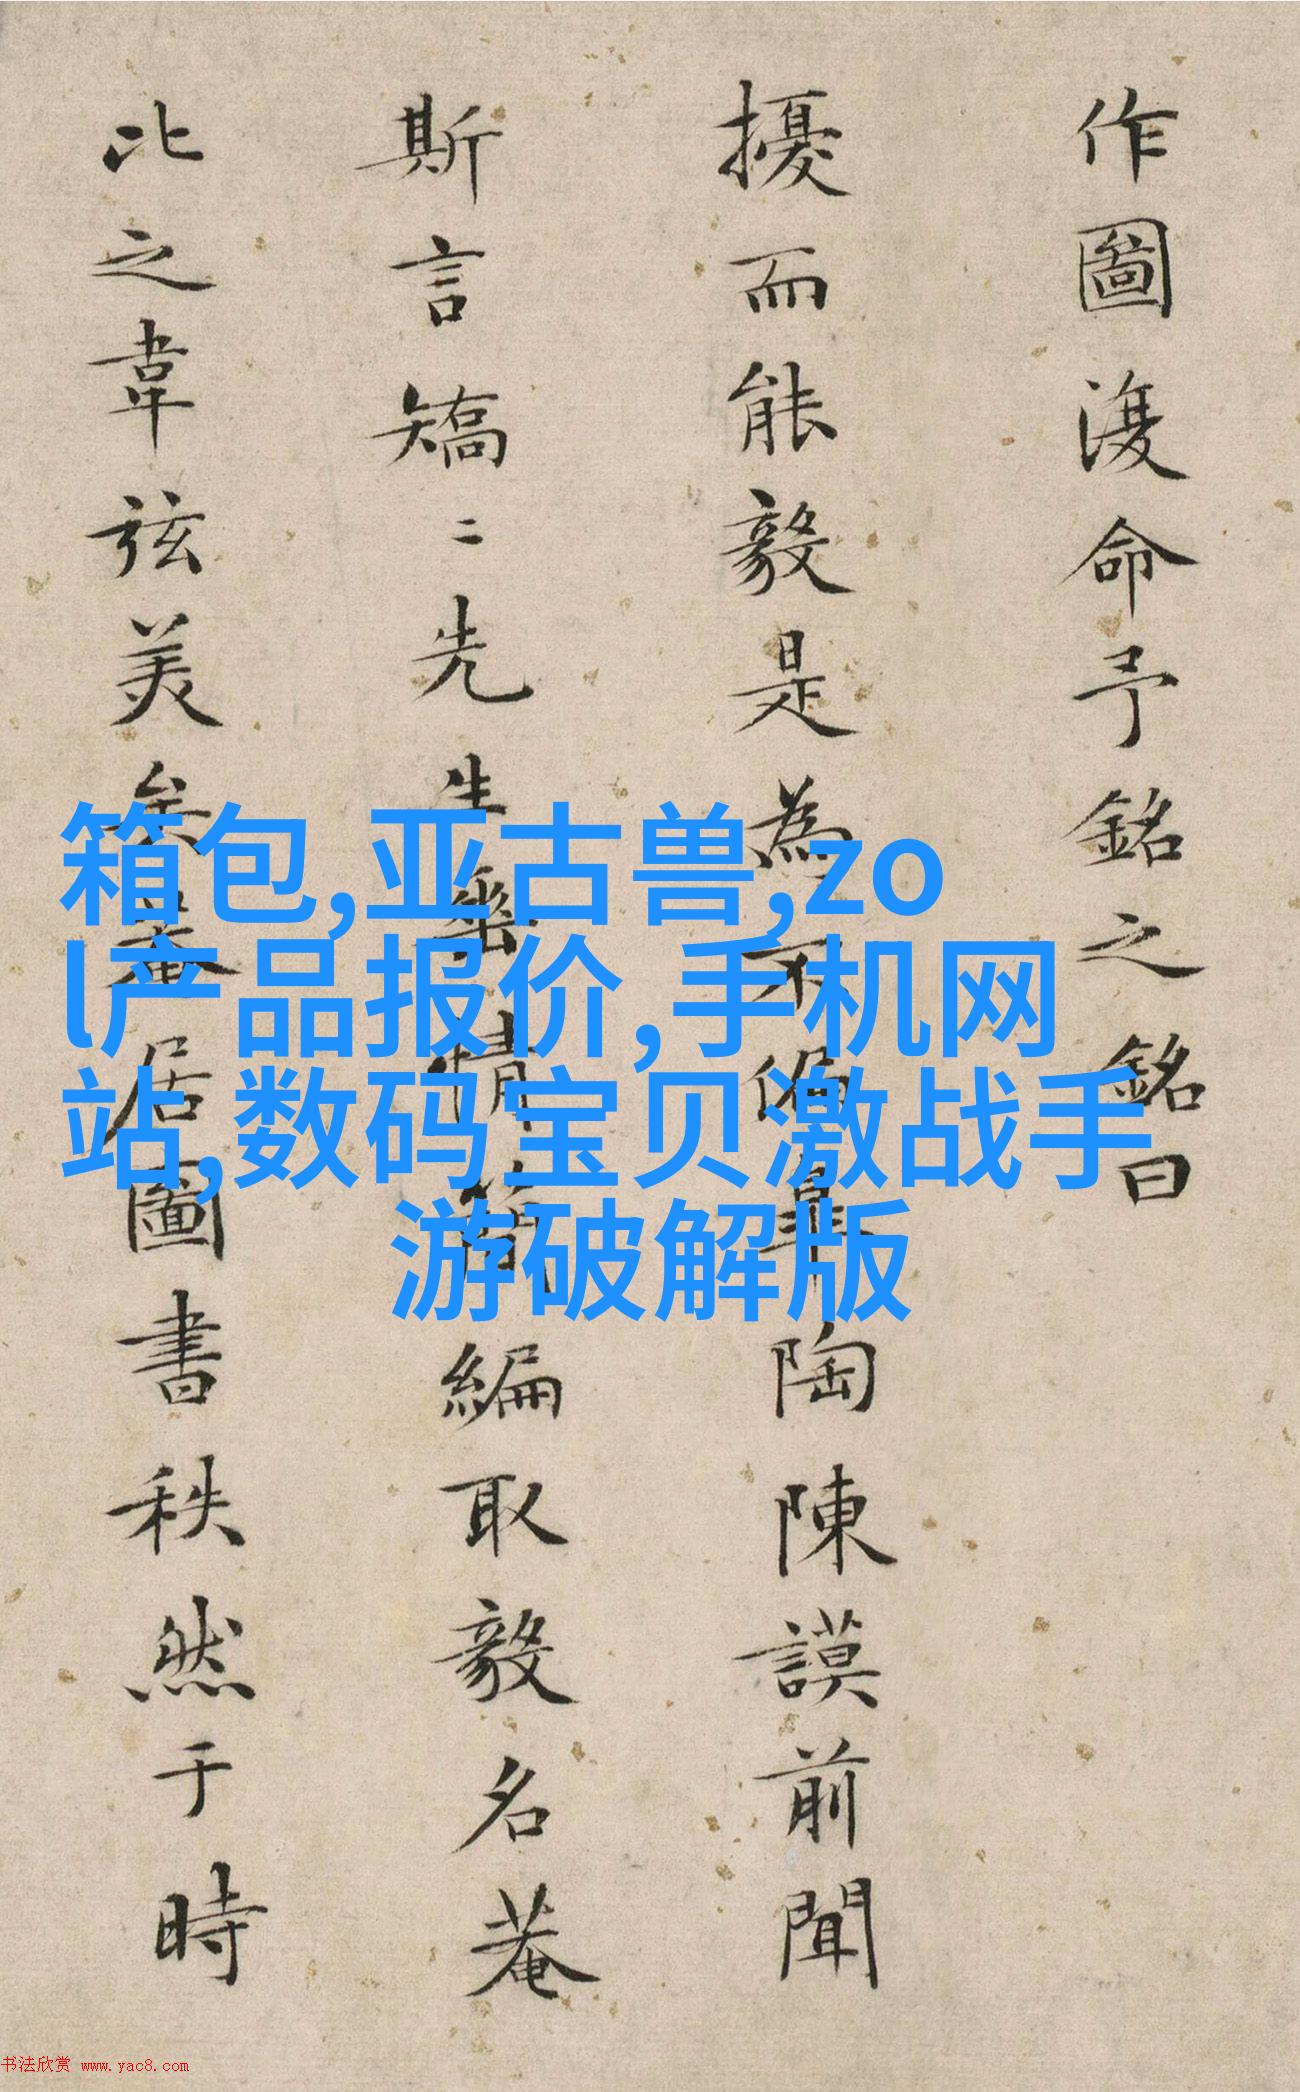 作圖澓命予銘之銘曰
擾而能毅是為不偏皐陶陳謨前聞
斯言矯〻先生樂情簡編取毅名菴
比之韋弦美矣菴居圖書秩然于時
箱包,亚古兽,zo
l产品报价,手机网
站,数码宝贝激战手
游破解版
书法欣赏 www.yac8.com